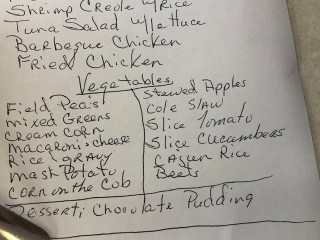 Shrimp Creole w/Rice
Tuna Salad w/lettuce
Barbeque Chicken
Fried Chicken
Vegetables
Field Peas
mixed Greens
Cream Corn
Macaroni & cheese
Rice & gravy
mash Potato
CORN on the Cob
Stewed Apples
Cole Slaw
Slice Tomato
Slice Cucumbers
CAJUN Rice
Beets
Dessert; Chocolate Pudding